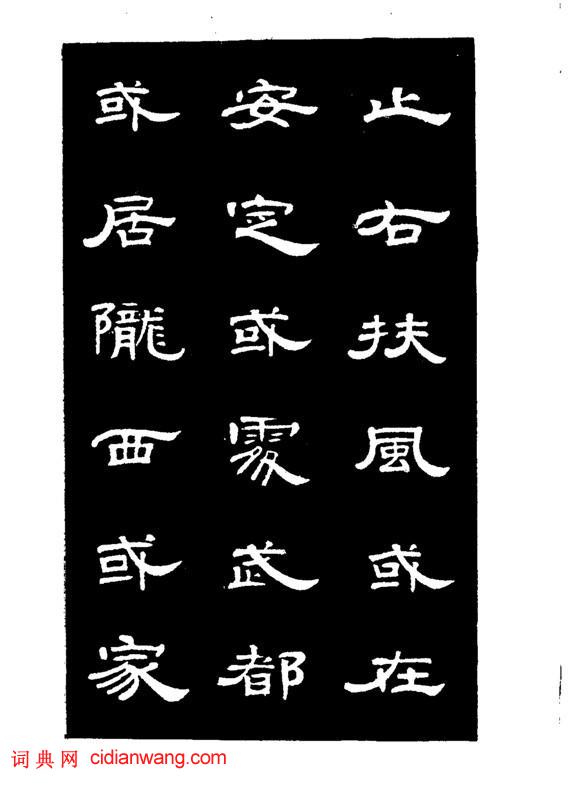 止右扶風或在
安定或處武都
或居隴西或家
词典网 cidianwang.com